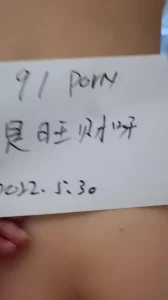 91 PorN
是旺财呀
2022.5.30